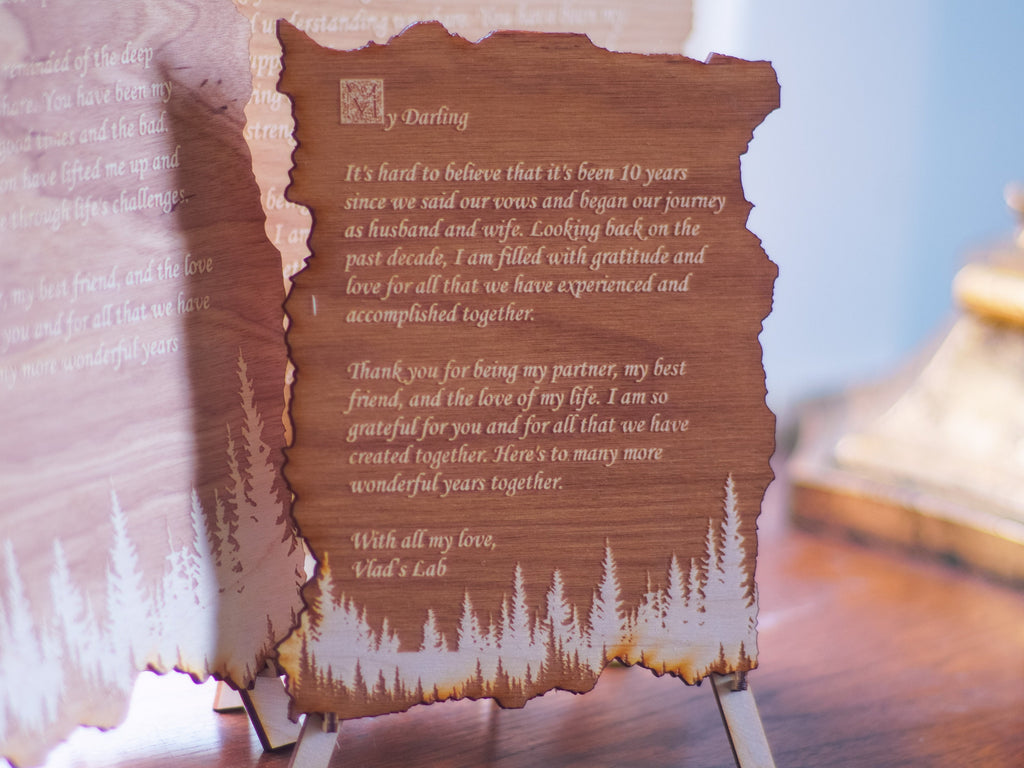 understanding
You have been my
reminded of the deep
share. You have been my
good times and the bad.
have lifted me up and
through life's challenges.
my best friend, and the love
you and for all that we have
my more wonderful years
My Darling
It's hard to believe that it's been 10 years
since we said our vows and began our journey
as husband and wife. Looking back on the
past decade, I am filled with gratitude and
love for all that we have experienced and
accomplished together.
Thank you for being my partner, my best
friend, and the love of my life. I am so
grateful for you and for all that we have
created together. Here's to many more
wonderful years together.
With all my love,
Vlad's Lab